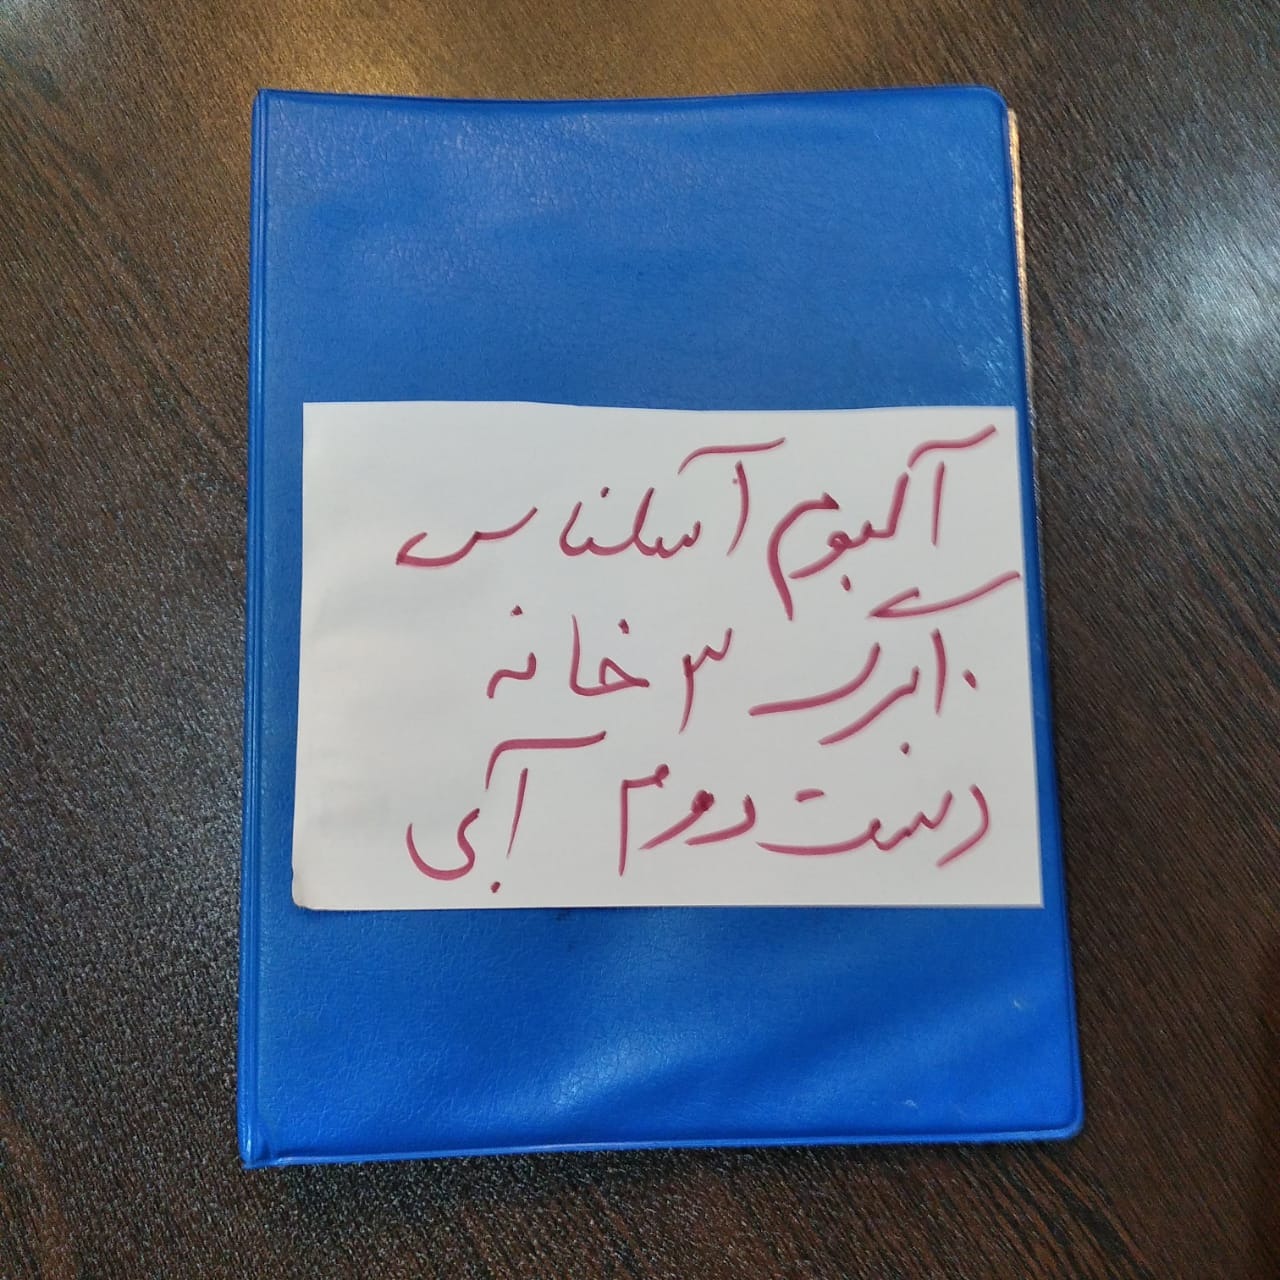 آلبوم اسکناس
۱۰ برگی ۳ خانه
دست دوم آبی